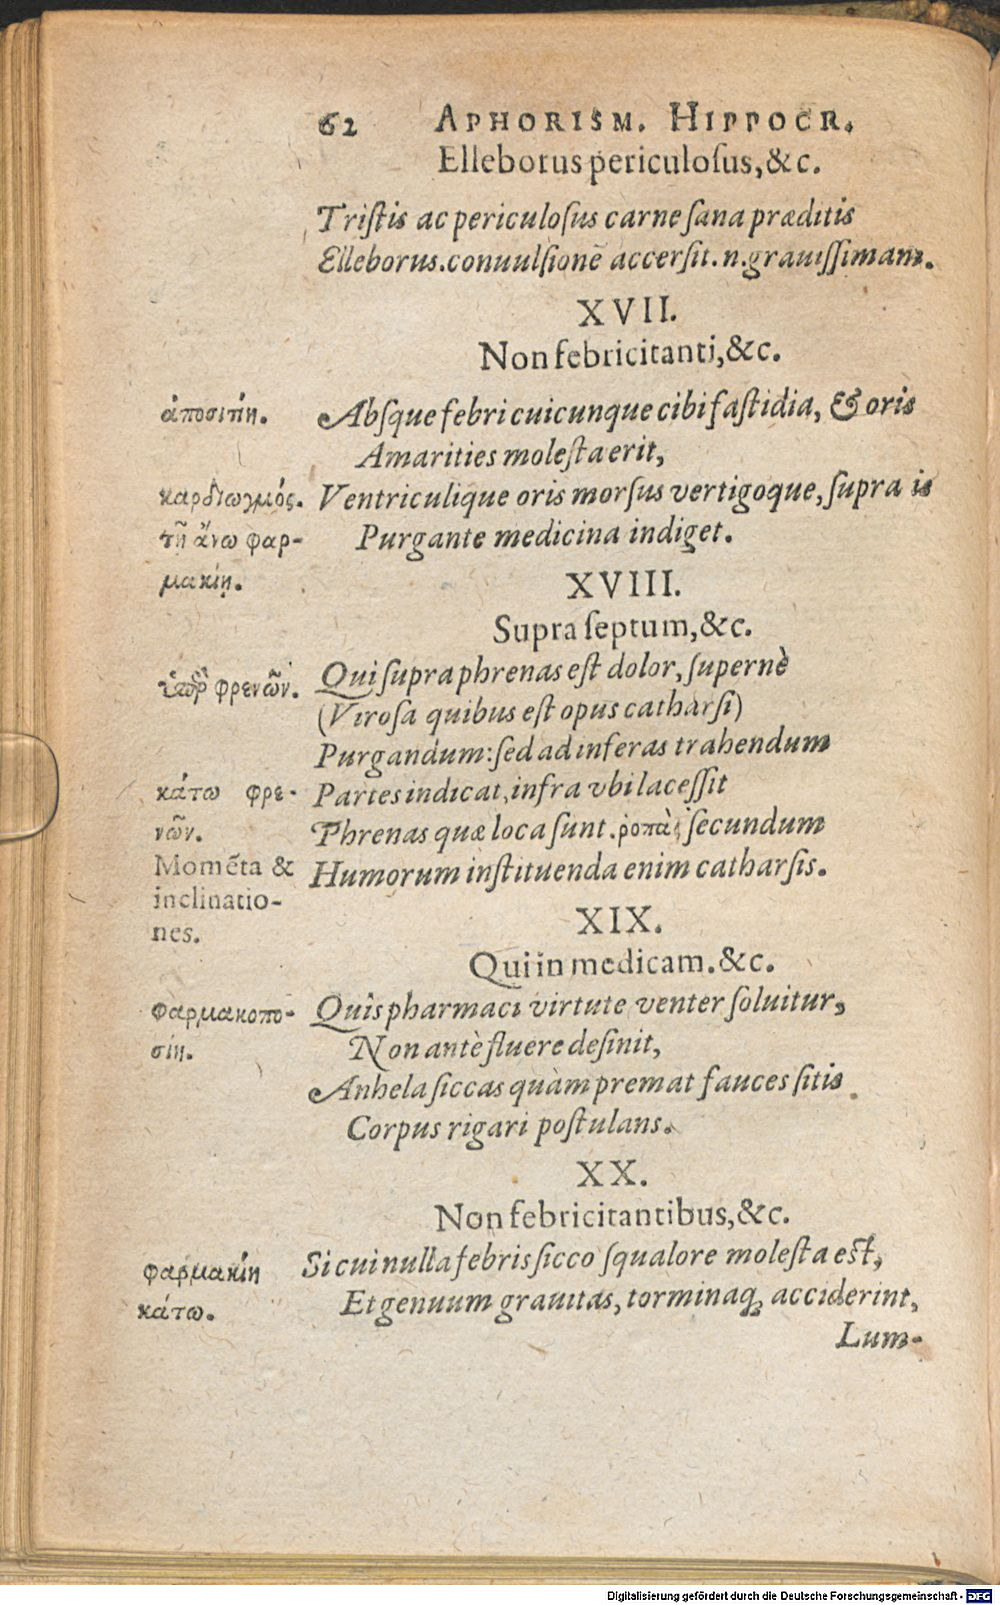 62 APHORISM. HIPPOCR.
Elleborus periculoſus, &c.
Triſtis ac periculoſus carne ſana præditis
Elleborus. conuulſionē accerſit. n. grauiſſimam.
XVII.
Non febricitanti, &c.
ἀποσιτίη. Abſque febri cuicunque cibi faſtidia, & oris
Amarities moleſta erit,
καρδιωγμός. Ventriculique oris morſus vertigoque, ſupra is
τῇ ἄνω φαρ- Purgante medicina indiget.
μακίῃ.
XVIII.
Supra ſeptum, &c.
ὑπὲρ φρενῶν. Qui ſupra phrenas eſt dolor, ſupernè
(Viroſa quibus eſt opus catharſi)
Purgandum: ſed ad inferas trahendum
κάτω φρε- Partes indicat, infra vbi laceſſit
νῶν. Phrenas quæ loca ſunt. ῥοπὰς ſecundum
Momēta & Humorum inſtituenda enim catharſis.
inclinatio-
nes.
XIX.
Qui in medicam. &c.
φαρμακοπο- Quîs pharmaci virtute venter ſoluitur,
σίη. Non antè fluere deſinit,
Anhela ſiccas quàm premat fauces ſitis
Corpus rigari poſtulans.
XX.
Non febricitantibus, &c.
φαρμακίη Si cui nulla febris ſicco ſqualore moleſta eſt,
κάτω. Et genuum grauitas, torminaq; acciderint,
Lum-
Digitalisierung gefördert durch die Deutsche Forschungsgemeinschaft - DFG